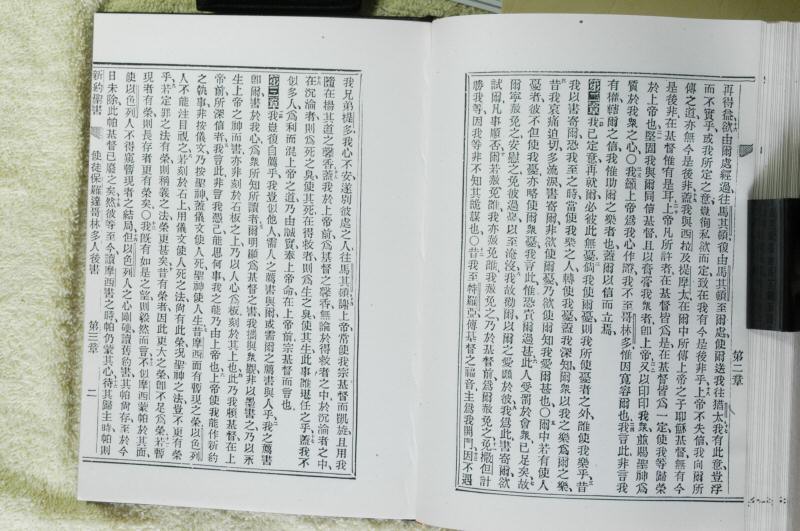 第二章
再得益欲由爾處經過往馬其頓復由馬其頓至爾處使爾送我往猶太我有此意豈浮
而不實乎或我所定之意豈徇私欲而定致在我有今是後非乎上帝不失信我向爾所
傳之道亦無今是後非蓋我與西拉及提摩太在爾中所傳上帝之子耶穌基督無有今
是後非在基督惟有是耳上帝凡所許者在基督皆爲是在基督皆爲一定使我等歸榮
於上帝也堅固我與爾同信基督且以膏膏我衆者卽上帝又以印印我衆並賜聖神爲
質於我衆之心〇我籲上帝爲我心作證我不至哥林多惟因寬容爾也我言此非言我
有權轄爾之信我惟助爾之樂者也蓋爾以信而立焉
第二章我已定意再就爾必彼此無憂倘我使爾憂則我所使憂者之外誰使我樂乎昔
我以書寄爾恐我至之時當使我樂之人轉使我憂蓋我深知爾衆以我之樂爲爾之樂
昔我哀痛迫切多流淚書寄爾非欲使爾憂乃欲使爾知我愛爾甚也〇爾中若有使人
憂者彼不但使我憂亦略使爾衆憂我言此惟恐責爾過甚此人受罰於會衆已足矣故
爾寧赦免之安慰之免彼過憂以至淹沒我故勸爾以爾之愛顯於彼我爲此書寄爾欲
試爾凡事順否爾若赦免誰我亦赦免誰我赦免之乃於基督前爲爾赦免之免撒但計
勝我等因我等非不知其詭謀也〇昔我至特羅亞傳基督之福音主爲我開門因不遇
我兄弟提多我心不安遂別彼處之人往馬其頓謝上帝常使我宗基督而凱旋且用我
隨在揚其道之馨香蓋我於上帝前爲基督之馨香無論於得救者之中於沉淪者之中
在沉淪者則爲死之臭使其死在得救者則爲生之臭使其生此事誰堪任之乎蓋我不
似多人爲利而混上帝之道乃由誠實奉上帝命在上帝前宗基督而言也
第三章我豈復自薦乎我豈似他人需人之薦書與爾或需爾之薦書與人乎我之薦書
卽爾書於我心爲衆所知所讀者爾明顯爲基督之書我儕與焉非以墨書之乃以永
生上帝之神而書亦非刻於石板之上乃以人心爲板刻於其上也此乃我賴基督在上
帝前所深信者我言此非言我憑己能思何事我之能乃由上帝也上帝使我能作新約
之執事非按儀文乃按聖神蓋儀文使人死聖神使人生昔摩西而有暫現之榮以色列
人不能注目視之若刻於石上用儀文使人死之法尙有此榮況聖神之法豈不更有榮
乎若定罪之法有榮則稱義之法榮更甚矣昔有榮者因此更大之榮卽不足爲榮若暫
現者有榮則長存者更有榮矣〇我旣有如是之望則毅然而言不似摩西蒙帕於其面
使以色列人不得窺暫現者之結局但以色列人之心剛硬讀舊約書其帕尙存至於今
日未除此帕基督已廢之矣然彼等至今讀摩西書之時帕仍蒙其心待其歸主時帕則
新約聖書
使徒保羅達哥林多人後書
第三章
二